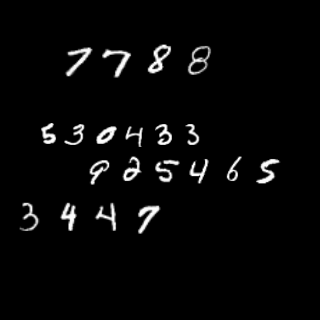 7788
530433
925465
3447